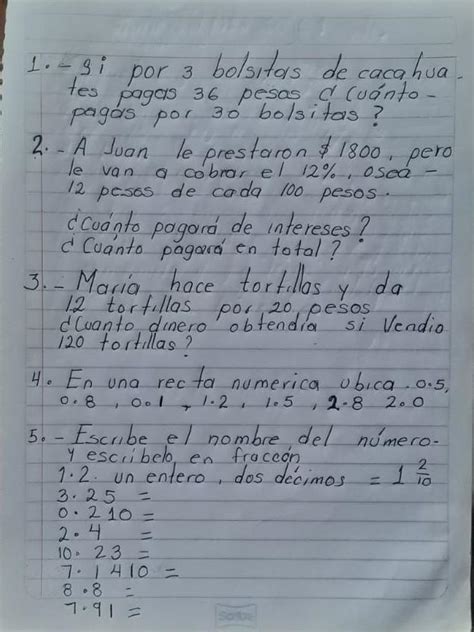 1.- Si por 3 bolsitas de cacahua
tes pagas 36 pesas d Cuánto-
pagas por 30 bolsitas?
2.- A Juan le prestaron $ 1800, pero
le van a cobrar el 12%, osea -
12 pesos de cada 100 pesos.
d Cuánto pagará de intereses?
d Cuanto pagará en total?
3.- María hace tortillas y da
12 tortillas por 20 pesos
d Cuanto dinero obtendía si vendio
120 tortillas?
4. En una recta numerica ubica .0.5,
0.8 , 0.1 , 1.2 , 1.5 , 2.8 2.0
5.- Escribe el nombre del número.
y escribelo en fraccón
1.2. un entero, dos décimos = 1 2/10
3.25 =
0.210 =
2.4 =
10.23 =
7.1410 =
8.8 =
7.91 =
Scribe